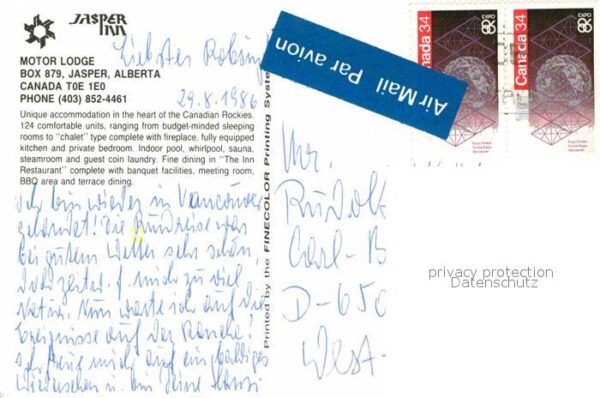 JASPER INN
MOTOR LODGE
BOX 879, JASPER, ALBERTA
CANADA T0E 1E0
PHONE (403) 852-4461
Unique accommodation in the heart of the Canadian Rockies.
124 comfortable units, ranging from budget-minded sleeping
rooms to "chalet" type complete with fireplace, fully equipped
kitchen and private bedroom. Indoor pool, whirlpool, sauna,
steamroom and guest coin laundry. Fine dining in "The Inn
Restaurant" complete with banquet facilities, meeting room,
BBQ area and terrace dining.
Liebster
29.8.1986
Ich bin wieder in Vancouver
gelandet! Die Rundreise war
bei gutem Wetter sehr schön,
mich zu viel
Natur. Nun warte ich auf die
Ereignisse auf der Ranche!
Ich freue mich auf ein baldiges
Wiedersehen u. bin Deine
Printed by the FINECOLOR Printing System
Air Mail Par avion
Canada 34
EXPO 86
Canada 34
EXPO 86
Rudolf
Carl-B
D-650
West-
privacy protection
Datenschutz